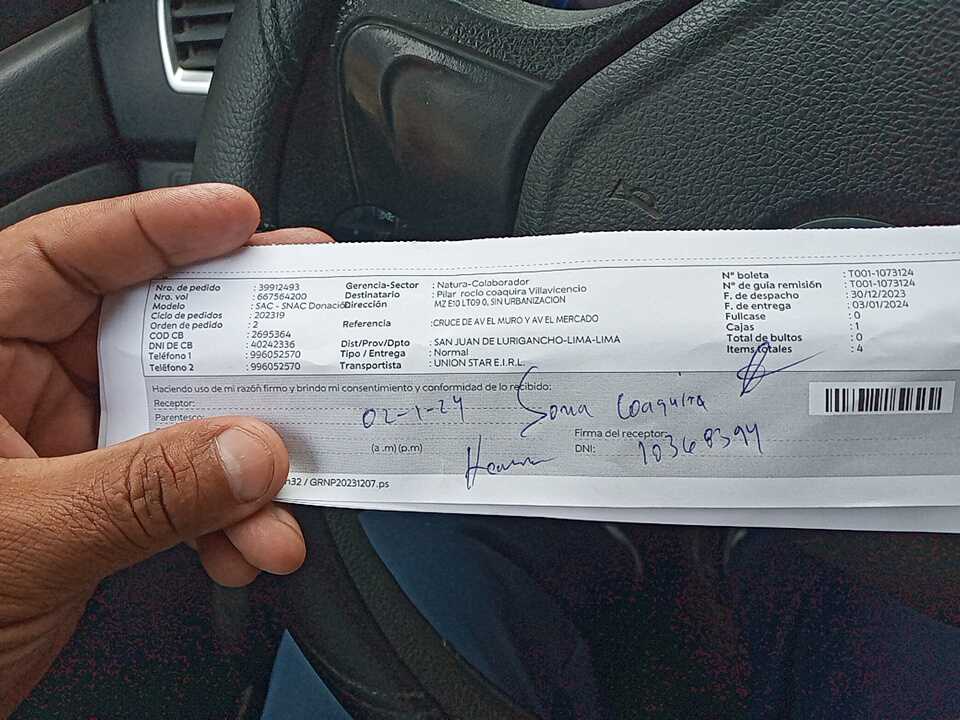 Nro. de pedido : 39912493
Nro. vol : 667564200
Modelo : SAC - SNAC Donació
Ciclo de pedidos : 202319
Orden de pedido : 2
COD CB : 2695364
DNI DE CB : 40242336
Teléfono 1 : 996052570
Teléfono 2 : 996052570
Gerencia-Sector : Natura-Colaborador
Destinatario : Pilar rocio coaquira Villavicencio
Dirección MZ E10 LT09 0, SIN URBANIZACION
Referencia :CRUCE DE AV EL MURO Y AV EL MERCADO
Dist/Prov/Dpto : SAN JUAN DE LURIGANCHO-LIMA-LIMA
Tipo / Entrega : Normal
Transportista : UNION STAR E.I.R.L.
N° boleta : T001-1073124
N° de guía remisión : T001-1073124
F. de despacho : 30/12/2023
F. de entrega : 03/01/2024
Fullcase : 0
Cajas : 1
Total de bultos : 0
Items totales : 4
Haciendo uso de mi razón firmo y brindo mi consentimiento y conformidad de lo recibido:
Receptor:
Parentesco:
02-1-24 Sonia Coaquira
(a .m) (p.m)
Firma del receptor:
DNI: 10368394
n32 / GRNP20231207.ps